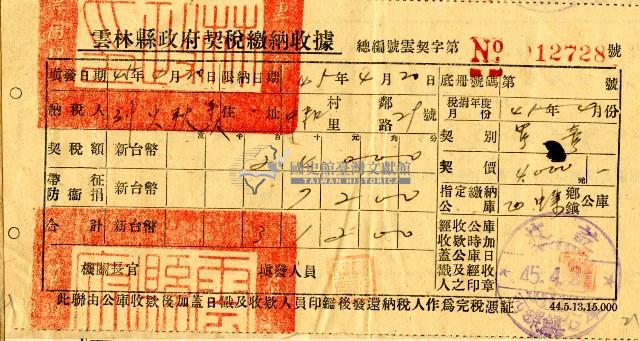 雲林縣政府契稅繳納收據 總編號雲契字第 No 012728號
填發日期 45年4月10日 限納日期 45年4月20日 底冊號碼第 號
納稅人 住址 村里 鄰路 號
稅捐年度月份 45年4月份
契別
契稅額 新台幣 2 4 0 0 0
契價 4000元
國史館臺灣文獻館
TAIWAN HISTORICA
帶征防衞捐 新台幣 7 2 0 0
指定繳納公庫 鄉鎮公庫
合計 新台幣 3 1 2 0 0
經收公庫收款時加蓋公庫日戳及經收人之印章
機關長官 填發人員
45.4.
此聯由公庫收款後加蓋日戳及收款人員印鑑後發還納稅人作為完稅憑証 44.5.13.15.000